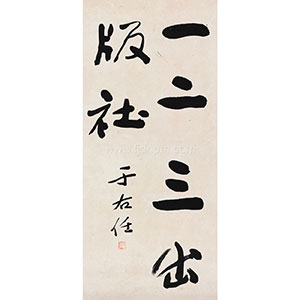 一二三出
版社
于右任